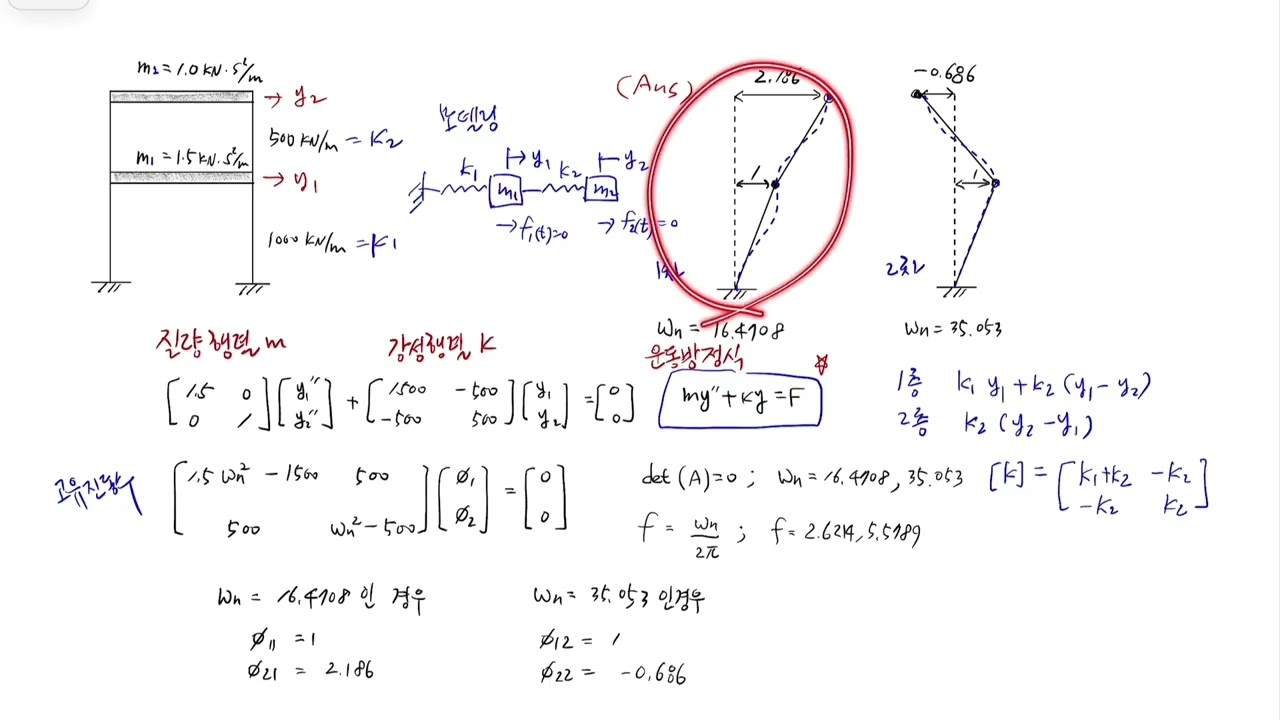 m₂ = 1.0 kN·s²/m
→ y₂
500 kN/m = K₂
m₁ = 1.5 kN·s²/m
→ y₁
1000 kN/m = K₁
모델링
k₁ m₁ ↦ y₁ k₂ m₂ y₂
→ f₁(t)=0 → f₂(t)=0
(Ans)
2.186
1
1차
Wn = 16.4708
-0.686
1
2차
Wn = 35.053
질량행렬 m 강성행렬 K 운동방정식
[1.5 0; 0 1][y₁''; y₂''] + [1500 -500; -500 500][y₁; y₂] = [0; 0]
my'' + ky = F
1층 k₁y₁ + k₂(y₁ - y₂)
2층 k₂(y₂ - y₁)
고유진동수
[1.5Wn² - 1500 500; 500 Wn² - 500][ø₁; ø₂] = [0; 0]
det(A)=0 ; Wn = 16.4708, 35.053
[K] = [k₁+k₂ -k₂; -k₂ k₂]
f = Wn/2π ; f = 2.6214, 5.5789
Wn = 16.4708 인 경우
ø₁₁ = 1
ø₂₁ = 2.186
Wn = 35.053 인경우
ø₁₂ = 1
ø₂₂ = -0.686